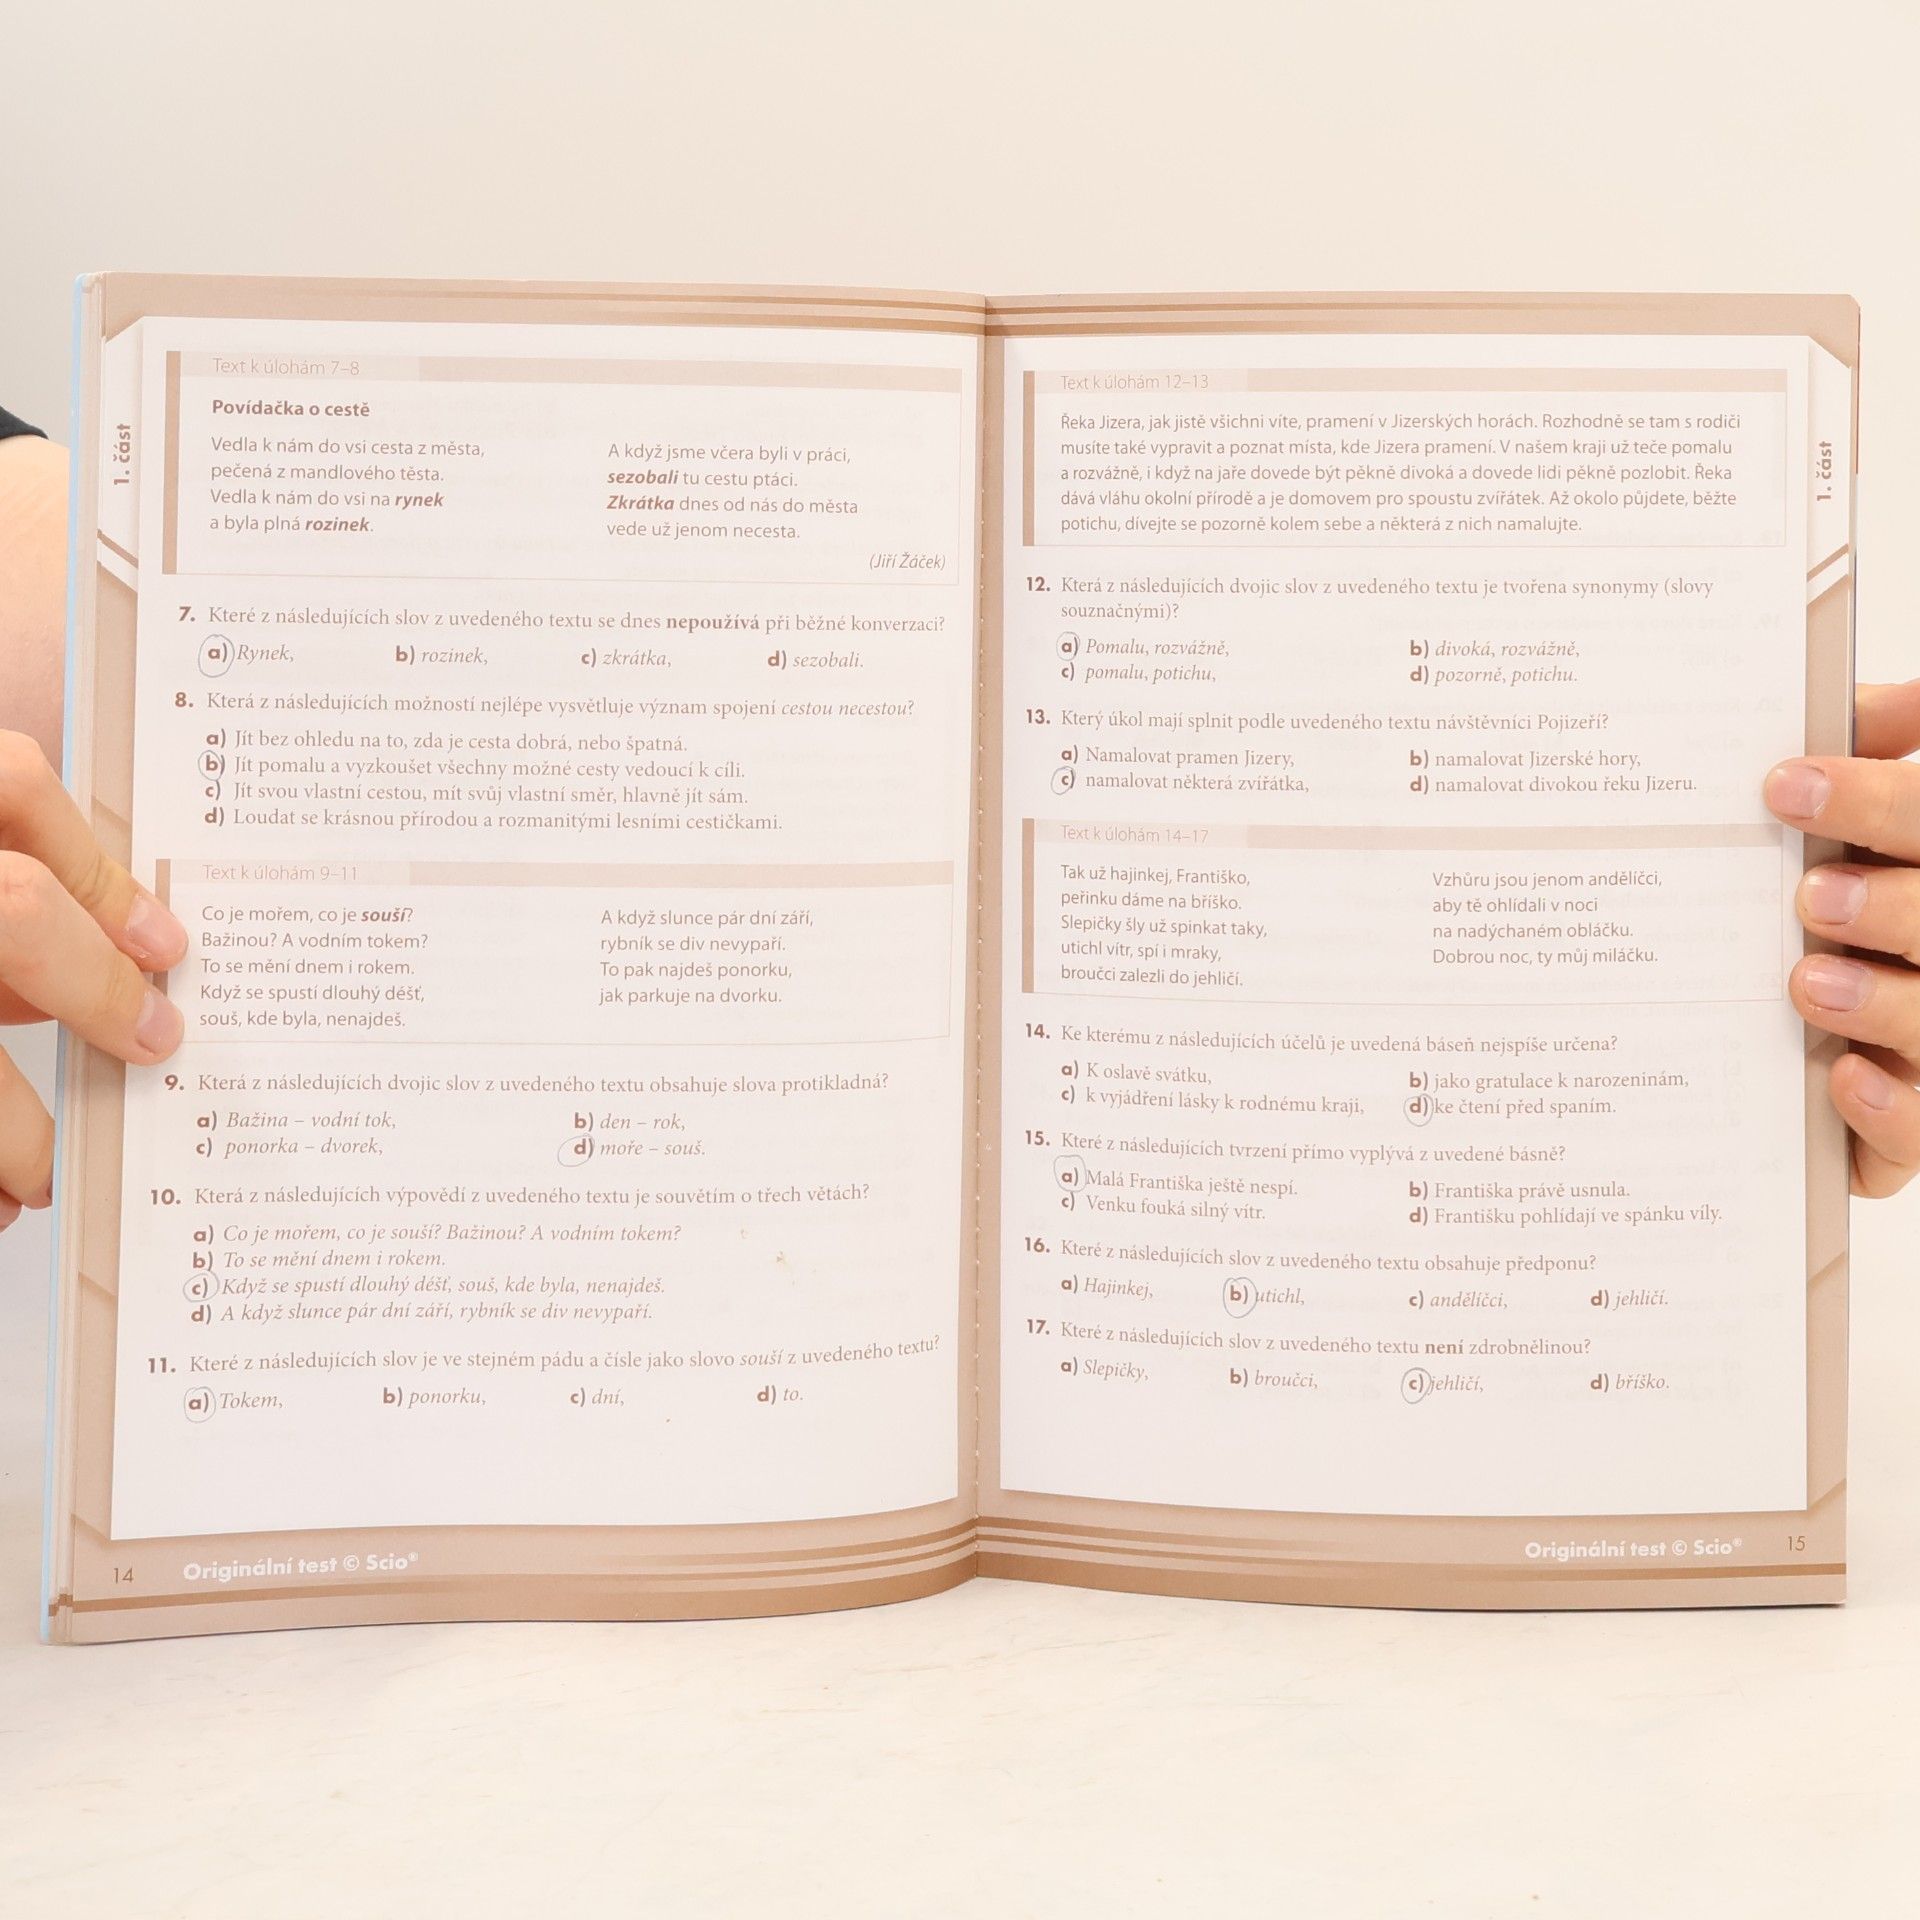 1. část
Text k úlohám 7–8
Povídačka o cestě
Vedla k nám do vsi cesta z města,
pečená z mandlového těsta.
Vedla k nám do vsi na rynek
a byla plná rozinek.
A když jsme včera byli v práci,
sezobali tu cestu ptáci.
Zkrátka dnes od nás do města
vede už jenom necesta.
(Jiří Žáček)
7. Které z následujících slov z uvedeného textu se dnes nepoužívá při běžné konverzaci?
a) Rynek, b) rozinek, c) zkrátka, d) sezobali.
8. Která z následujících možností nejlépe vysvětluje význam spojení cestou necestou?
a) Jít bez ohledu na to, zda je cesta dobrá, nebo špatná.
b) Jít pomalu a vyzkoušet všechny možné cesty vedoucí k cíli.
c) Jít svou vlastní cestou, mít svůj vlastní směr, hlavně jít sám.
d) Loudat se krásnou přírodou a rozmanitými lesními cestičkami.
Text k úlohám 9–11
Co je mořem, co je souší?
Bažinou? A vodním tokem?
To se mění dnem i rokem.
Když se spustí dlouhý déšť,
souš, kde byla, nenajdeš.
A když slunce pár dní září,
rybník se div nevypaří.
To pak najdeš ponorku,
jak parkuje na dvorku.
9. Která z následujících dvojic slov z uvedeného textu obsahuje slova protikladná?
a) Bažina – vodní tok, b) den – rok,
c) ponorka – dvorek, d) moře – souš.
10. Která z následujících výpovědí z uvedeného textu je souvětím o třech větách?
a) Co je mořem, co je souší? Bažinou? A vodním tokem?
b) To se mění dnem i rokem.
c) Když se spustí dlouhý déšť, souš, kde byla, nenajdeš.
d) A když slunce pár dní září, rybník se div nevypaří.
11. Které z následujících slov je ve stejném pádu a čísle jako slovo souší z uvedeného textu?
a) Tokem, b) ponorku, c) dní, d) to.
14 Originální test © Scio®
1. část
Text k úlohám 12–13
Řeka Jizera, jak jistě všichni víte, pramení v Jizerských horách. Rozhodně se tam s rodiči
musíte také vypravit a poznat místa, kde Jizera pramení. V našem kraji už teče pomalu
a rozvážně, i když na jaře dovede být pěkně divoká a dovede lidi pěkně pozlobit. Řeka
dává vláhu okolní přírodě a je domovem pro spoustu zvířátek. Až okolo půjdete, běžte
potichu, dívejte se pozorně kolem sebe a některá z nich namalujte.
12. Která z následujících dvojic slov z uvedeného textu je tvořena synonymy (slovy
souznačnými)?
a) Pomalu, rozvážně, b) divoká, rozvážně,
c) pomalu, potichu, d) pozorně, potichu.
13. Který úkol mají splnit podle uvedeného textu návštěvníci Pojizeří?
a) Namalovat pramen Jizery, b) namalovat Jizerské hory,
c) namalovat některá zvířátka, d) namalovat divokou řeku Jizeru.
Text k úlohám 14–17
Tak už hajinkej, Františko,
peřinku dáme na bříško.
Slepičky šly už spinkat taky,
utichl vítr, spí i mraky,
broučci zalezli do jehličí.
Vzhůru jsou jenom andělíčci,
aby tě ohlídali v noci
na nadýchaném obláčku.
Dobrou noc, ty můj miláčku.
14. Ke kterému z následujících účelů je uvedená báseň nejspíše určena?
a) K oslavě svátku, b) jako gratulace k narozeninám,
c) k vyjádření lásky k rodnému kraji, d) ke čtení před spaním.
15. Které z následujících tvrzení přímo vyplývá z uvedené básně?
a) Malá Františka ještě nespí. b) Františka právě usnula.
c) Venku fouká silný vítr. d) Františku pohlídají ve spánku víly.
16. Které z následujících slov z uvedeného textu obsahuje předponu?
a) Hajinkej, b) utichl, c) andělíčci, d) jehličí.
17. Které z následujících slov z uvedeného textu není zdrobnělinou?
a) Slepičky, b) broučci, c) jehličí, d) bříško.
Originální test © Scio® 15